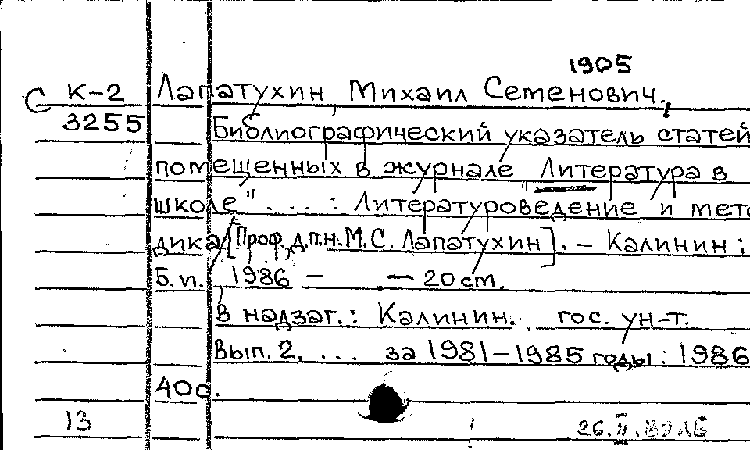 1905
С К-2 Лапатухин, Михаил Семенович.
3255 Библиографический указатель статей
помещенных в журнале „Литература в
школе" .... : Литературоведение и мето-
дика/[Проф., д.п.н. М.С. Лапатухин]. – Калинин :
Б.и., 1986 – — 20 см.
В надзаг.: Калинин. гос. ун-т.
Вып. 2, ... за 1981–1985 годы : 1986
40с.
13